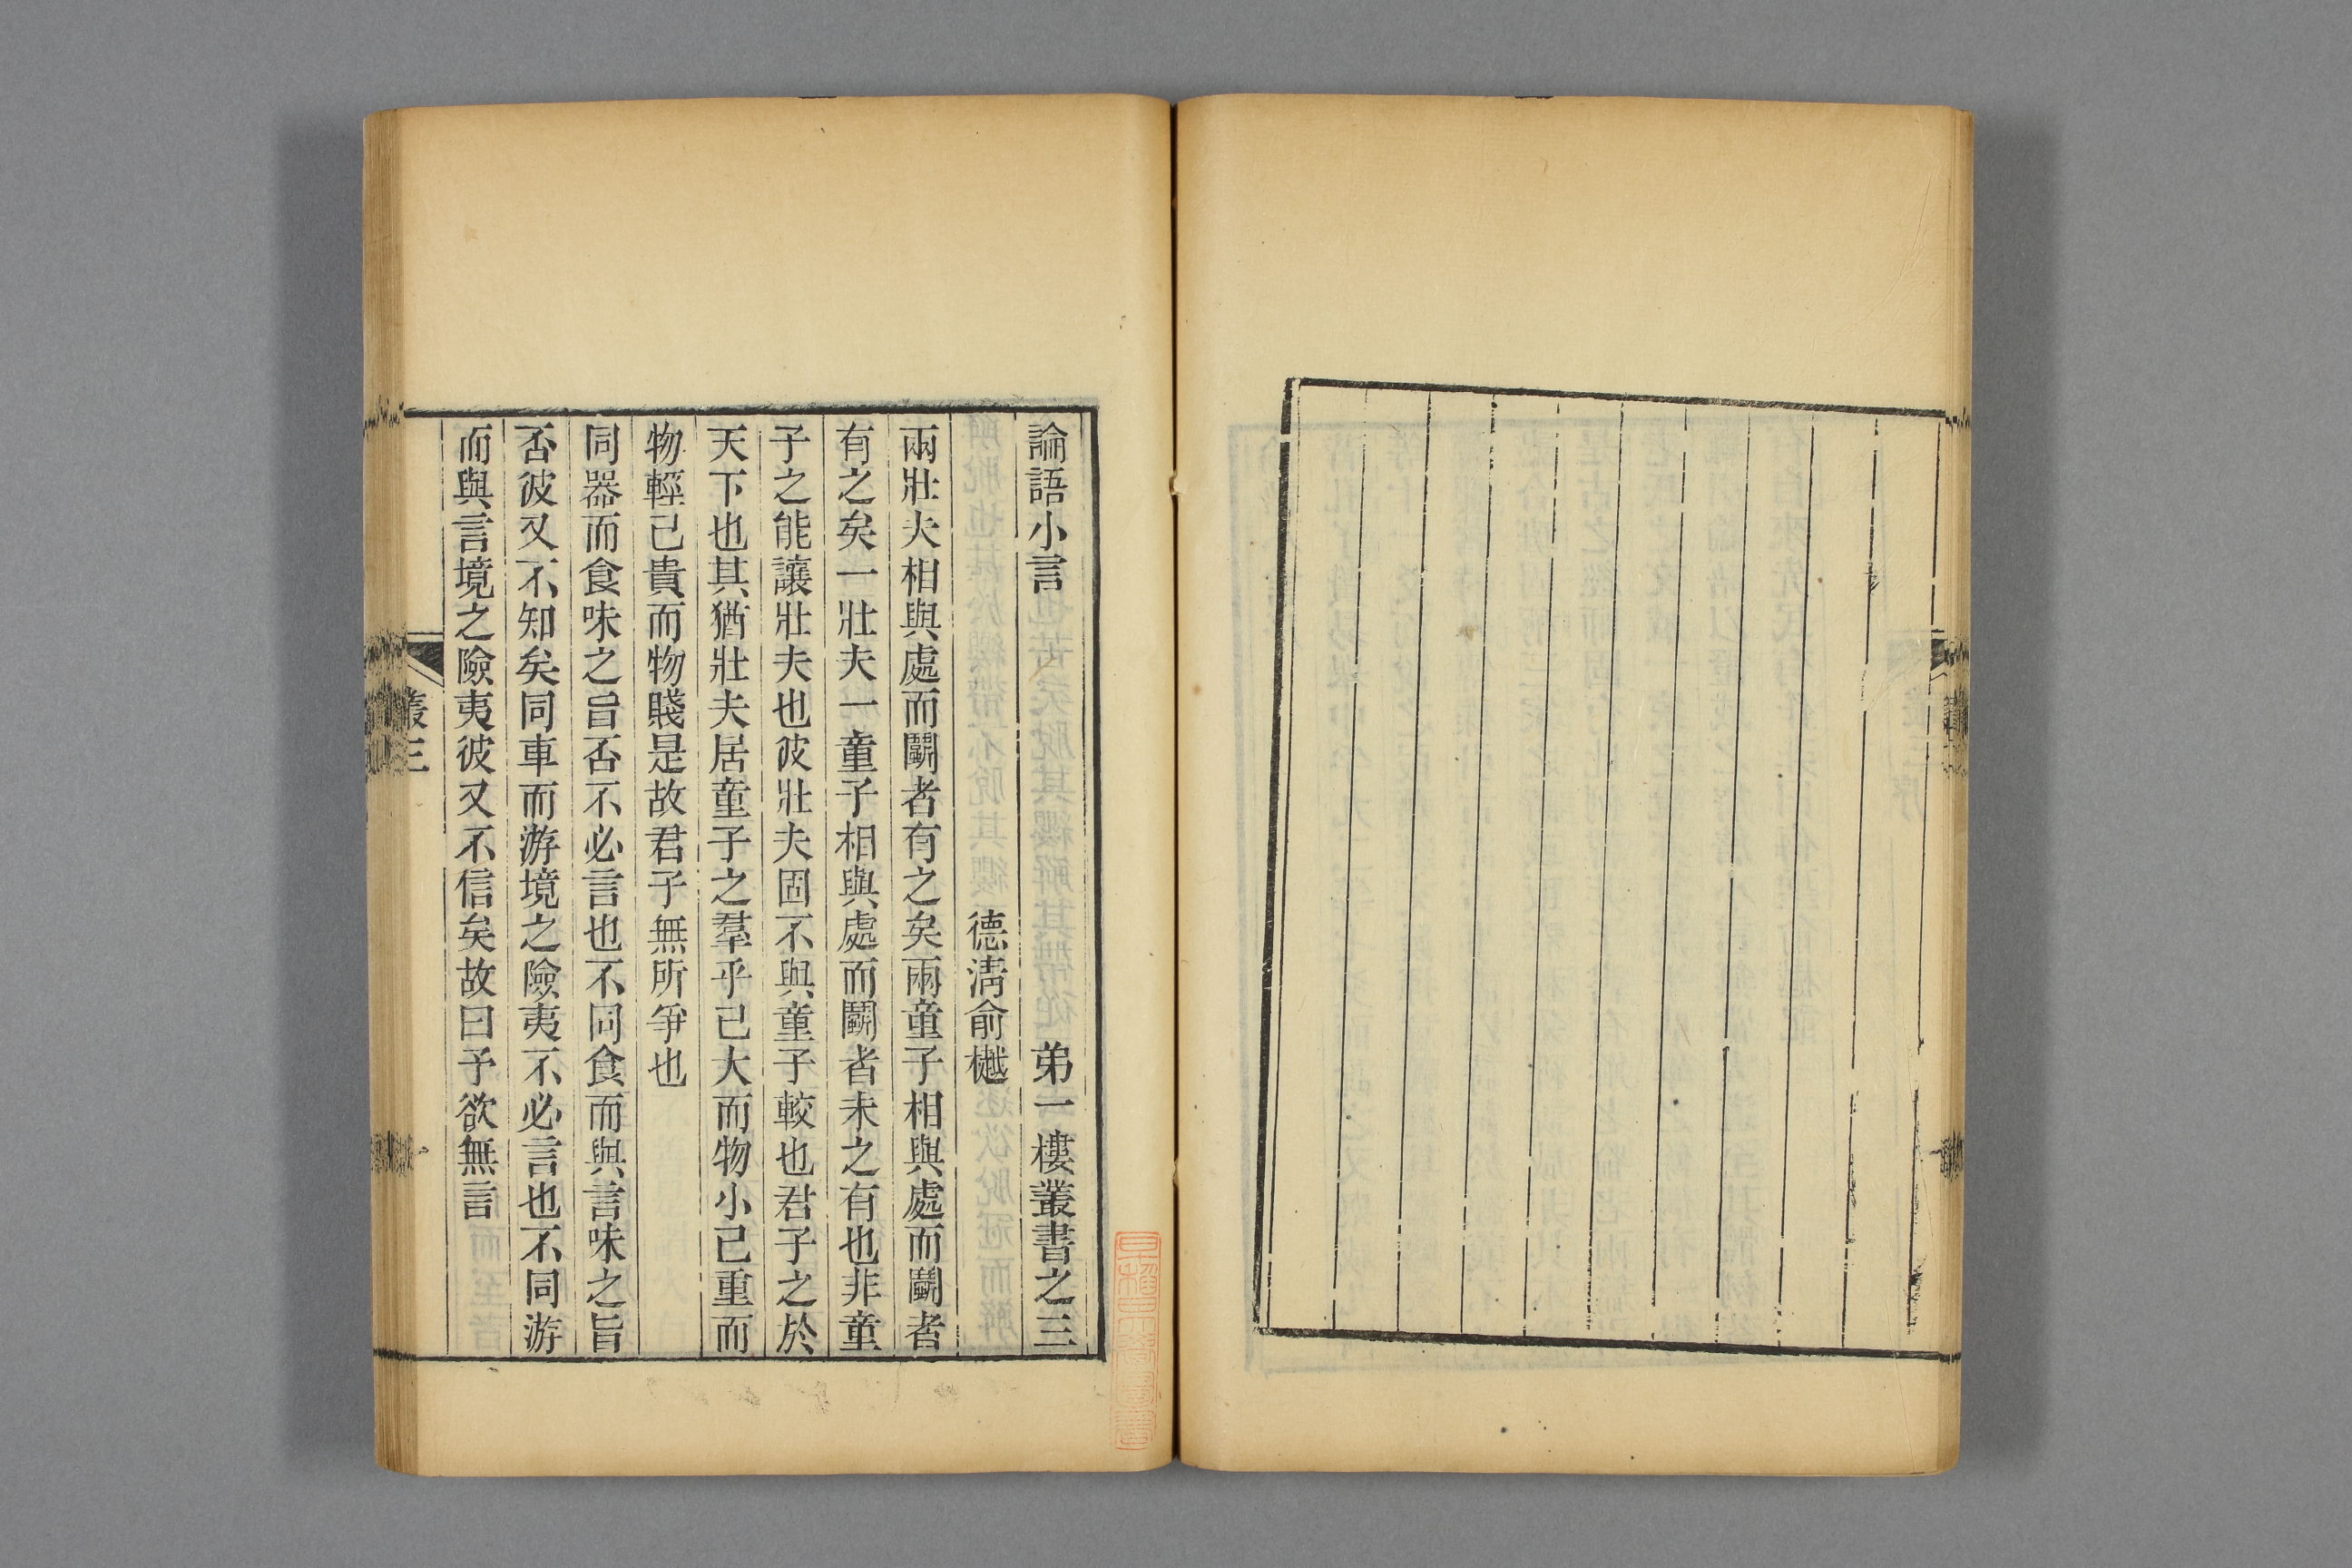 論語小言　弟一樓叢書之三
德淸俞樾
兩壯夫相與處而鬭者有之矣兩童子相與處而鬭者
有之矣一壯夫一童子相與處而鬭者未之有也非童
子之能讓壯夫也彼壯夫固不與童子較也君子之於
天下也其猶壯夫居童子之羣乎己大而物小己重而
物輕己貴而物賤是故君子無所爭也
同器而食味之旨否不必言也不同食而與言味之旨
否彼又不知矣同車而游境之險夷不必言也不同游
而與言境之險夷彼又不信矣故曰予欲無言
叢三
一